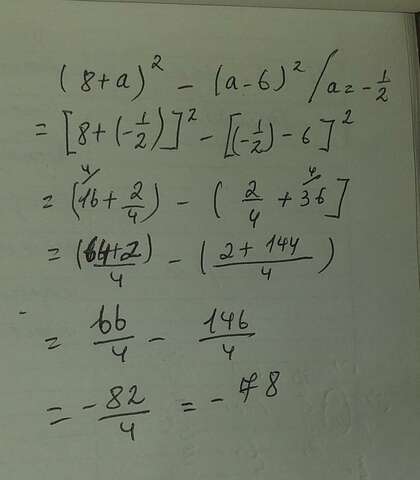 (8+a)² - (a-6)² / a = -1/2
= [8+(-1/2)]² - [(-1/2)-6]²
= (16 + 2/4) - ( 2/4 + 36 ]
4 4
= (64+2)/4 - (2+144)/4 )
= 66/4 - 146/4
= -82/4 = -78